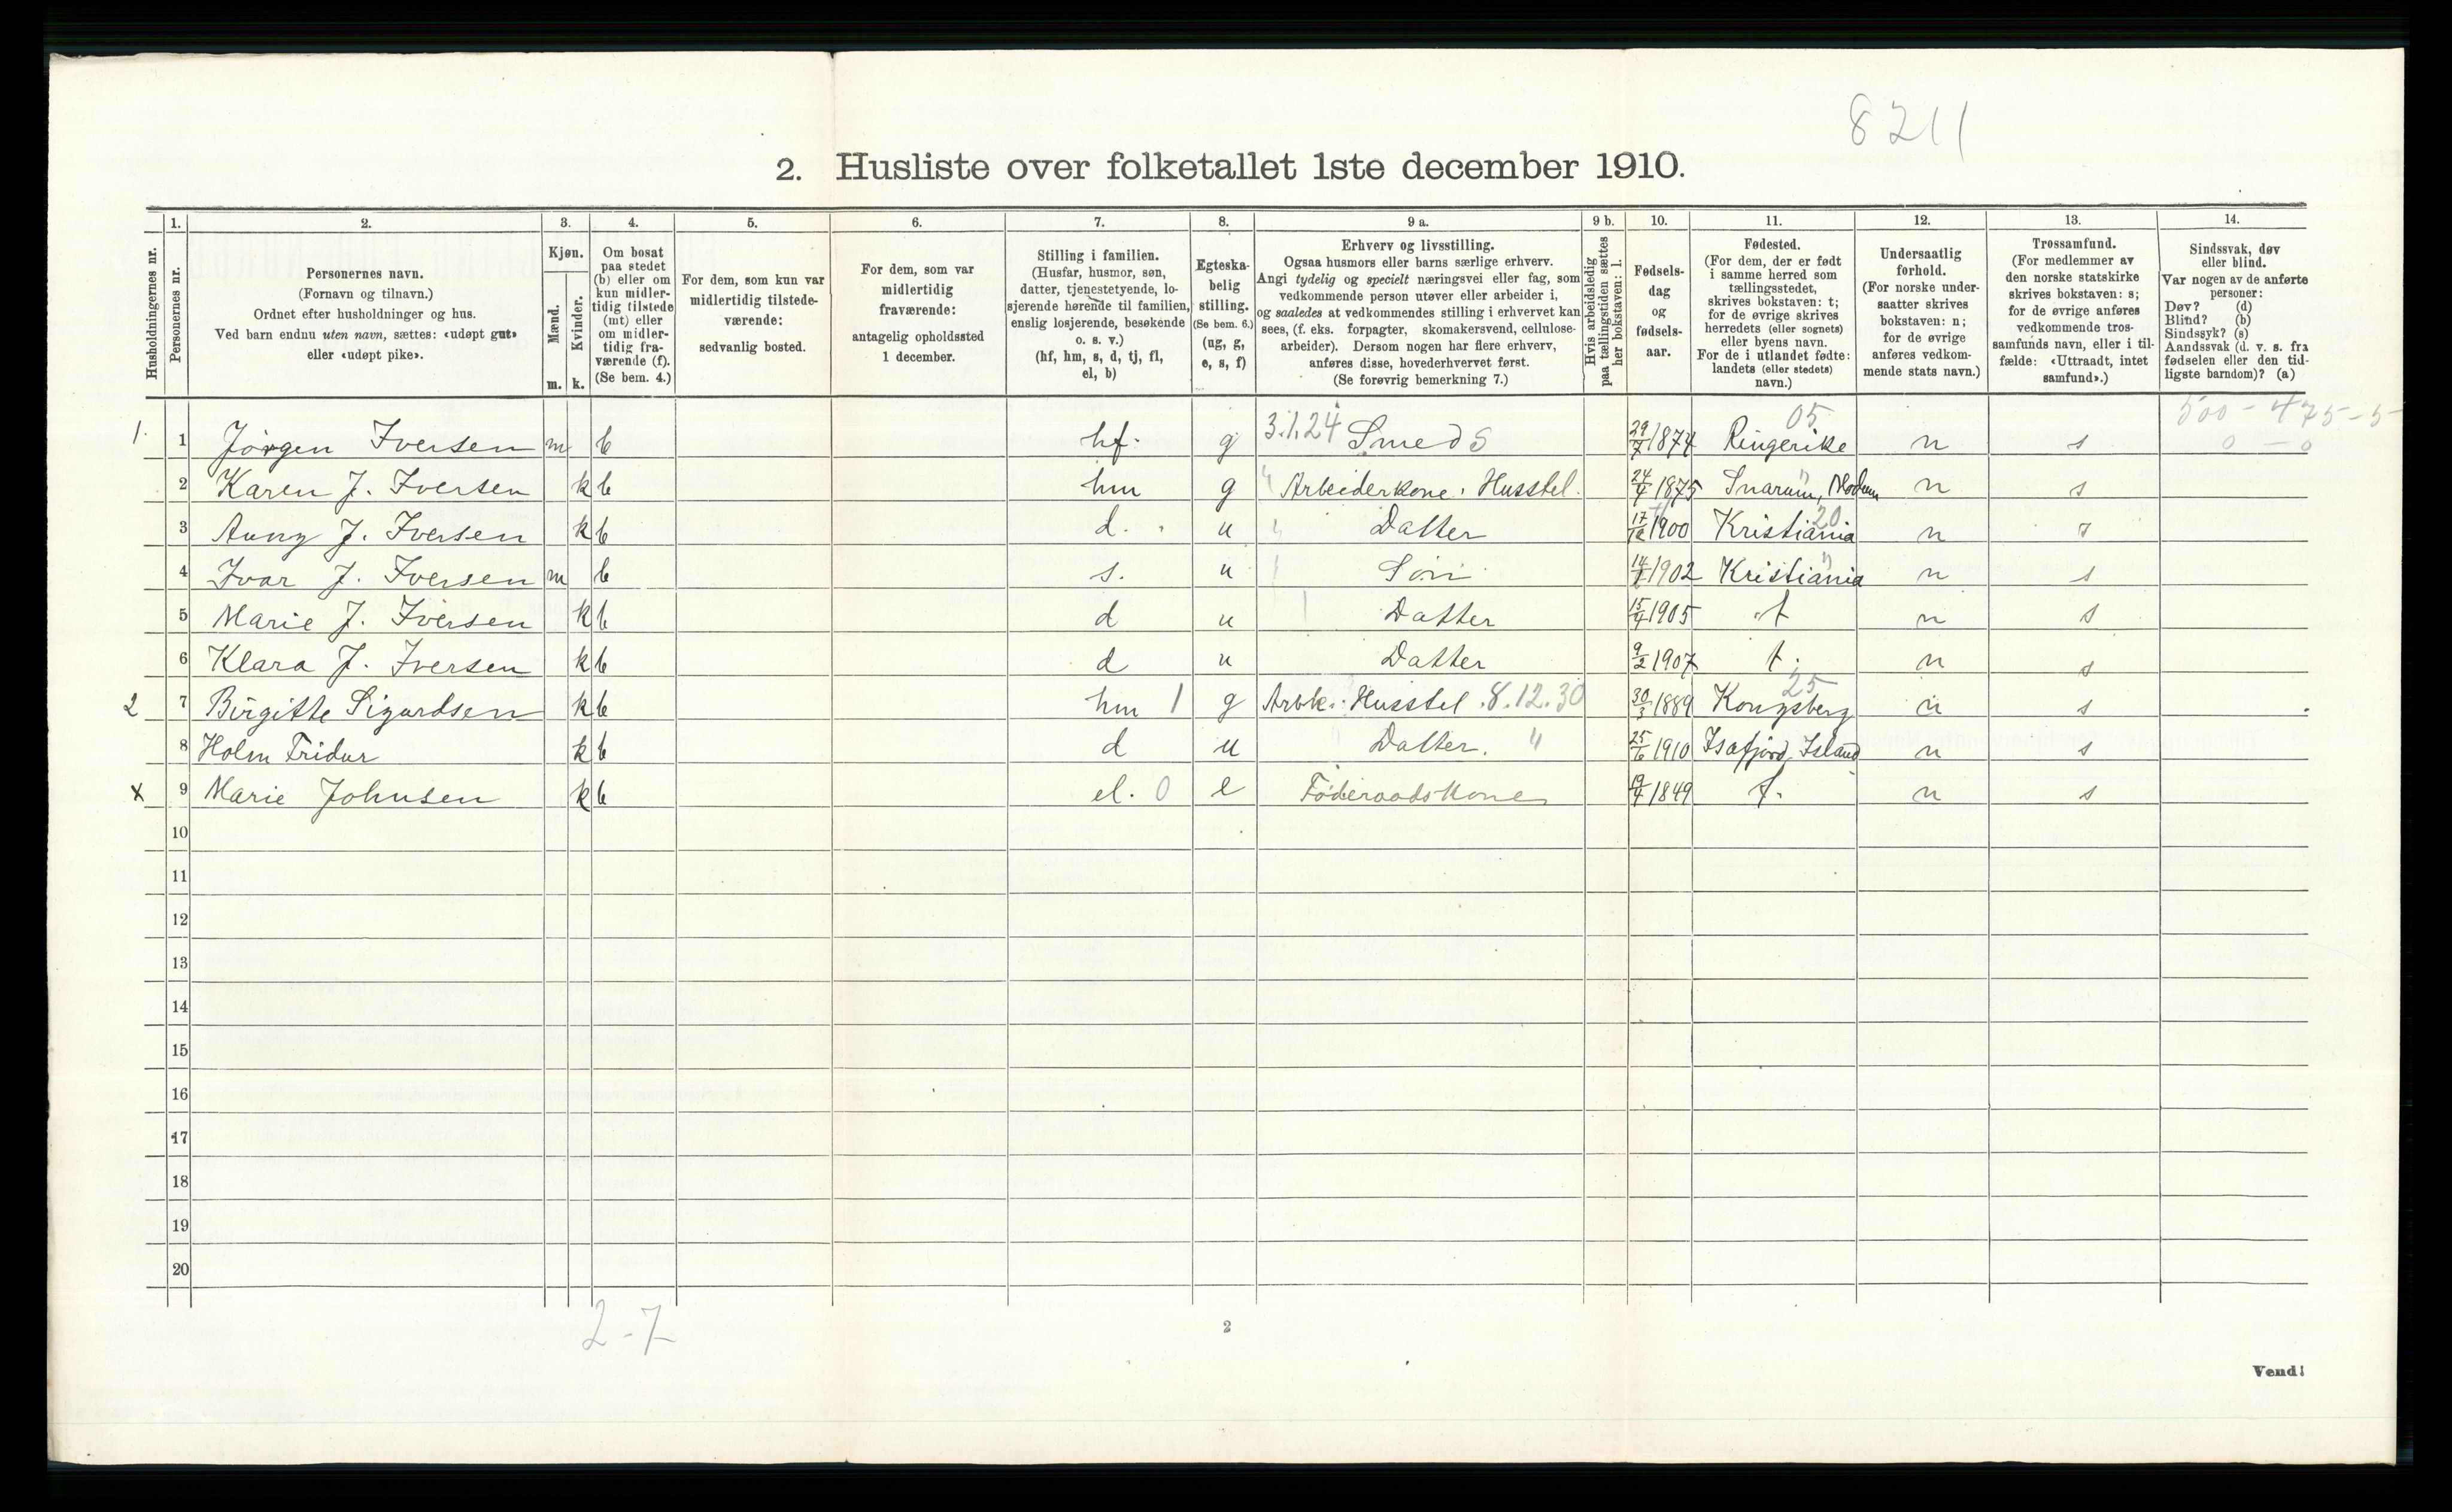 8211
2. Husliste over folketallet 1ste december 1910.
Husholdningernes nr.
1.
Personernes nr.
2.
Personernes navn.
(Fornavn og tilnavn.)
Ordnet efter husholdninger og hus.
Ved barn endnu uten navn, sættes: «udøpt gut»
eller «udøpt pike».
3.
Kjøn.
Mænd.
m.
Kvinder.
k.
4.
Om bosat
paa stedet
(b) eller om
kun midler-
tidig tilstede
(mt) eller
om midler-
tidig fra-
værende (f).
(Se bem. 4.)
5.
For dem, som kun var
midlertidig tilstede-
værende:
sedvanlig bosted.
6.
For dem, som var
midlertidig
fraværende:
antagelig opholdssted
1 december.
7.
Stilling i familien.
(Husfar, husmor, søn,
datter, tjenestetyende, lo-
sjerende hørende til familien,
enslig losjerende, besøkende
o. s. v.)
(hf, hm, s, d, tj, fl,
el, b)
8.
Egteska-
belig
stilling.
(Se bem. 6.)
(ug, g,
e, s, f)
9 a.
Erhverv og livsstilling.
Ogsaa husmors eller barns særlige erhverv.
Angi tydelig og specielt næringsvei eller fag, som
vedkommende person utøver eller arbeider i,
og saaledes at vedkommendes stilling i erhvervet kan
sees, (f. eks. forpagter, skomakersvend, cellulose-
arbeider). Dersom nogen har flere erhverv,
anføres disse, hovederhvervet først.
(Se forøvrig bemerkning 7.)
9 b.
Hvis arbeidsledig
paa tællingstiden sættes
her bokstaven: l.
10.
Fødsels-
dag
og
fødsels-
aar.
11.
Fødested.
(For dem, der er født
i samme herred som
tællingsstedet,
skrives bokstaven: t;
for de øvrige skrives
herredets (eller sognets)
eller byens navn.
For de i utlandet fødte:
landets (eller stedets)
navn.)
12.
Undersaatlig
forhold.
(For norske under-
saatter skrives
bokstaven: n;
for de øvrige
anføres vedkom-
mende stats navn.)
13.
Trossamfund.
(For medlemmer av
den norske statskirke
skrives bokstaven: s;
for de øvrige anføres
vedkommende tros-
samfunds navn, eller i til-
fælde: «Uttraadt, intet
samfund».)
14.
Sindssvak, døv
eller blind.
Var nogen av de anførte
personer:
Døv? (d)
Blind? (b)
Sindssyk? (s)
Aandssvak (d. v. s. fra
fødselen eller den tid-
ligste barndom)? (a)
3.1.24 05 500 - 475 - 5
1. 1 Jørgen Iversen m b hf. g Smed S 29/7 1874 Ringerike n s 0 - 0
2 Karen J. Iversen k b hm g " Arbeiderkone. Husstel. 24/4 1875 Snarum, Modum n s
20
3 Anny J. Iversen k b d. u " Datter 17/12 1900 Kristiania n s
4 Ivar J. Iversen m b s. u Søn 1902 Kristiania n s
5 Marie J. Iversen k b d u Datter 15/4 1905 t n s
6 Klara J. Iversen k b d u Datter 9/2 1907 t. n s
25
2 7 Birgitte Sigurdsen k b hm 1 g Arbk. Husstel 8.12.30 30/3 1889 Kongsberg n s
8 Holm Fridur k b d u Datter. " 25/6 1910 Isafjord, Island n s
x 9 Marie Johnsen k b el. 0 e Føderaadskone 1849 t. n s
10
11
12
13
14
15
16
17
18
19
20
2-7
2
Vend!